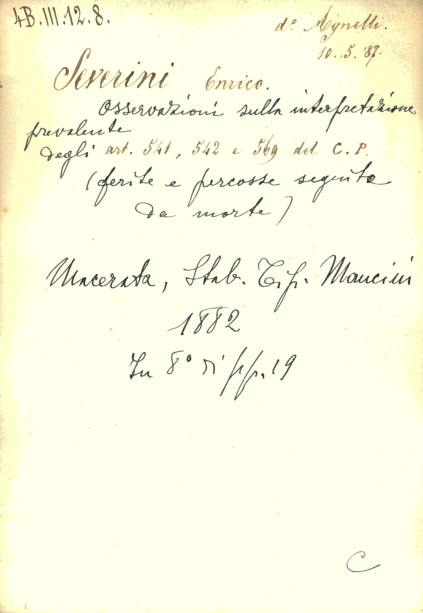 4B.III.12.8.
d.° Agnelli.
10.5.'87.
Severini Enrico.
Osservazioni sulla interpretazione
prevalente
degli art. 541, 542 e 569 del C. P.
(ferite e percosse seguite
da morte)
Macerata, Stab. Tip. Mancini
1882
In 8° di pp. 19
C